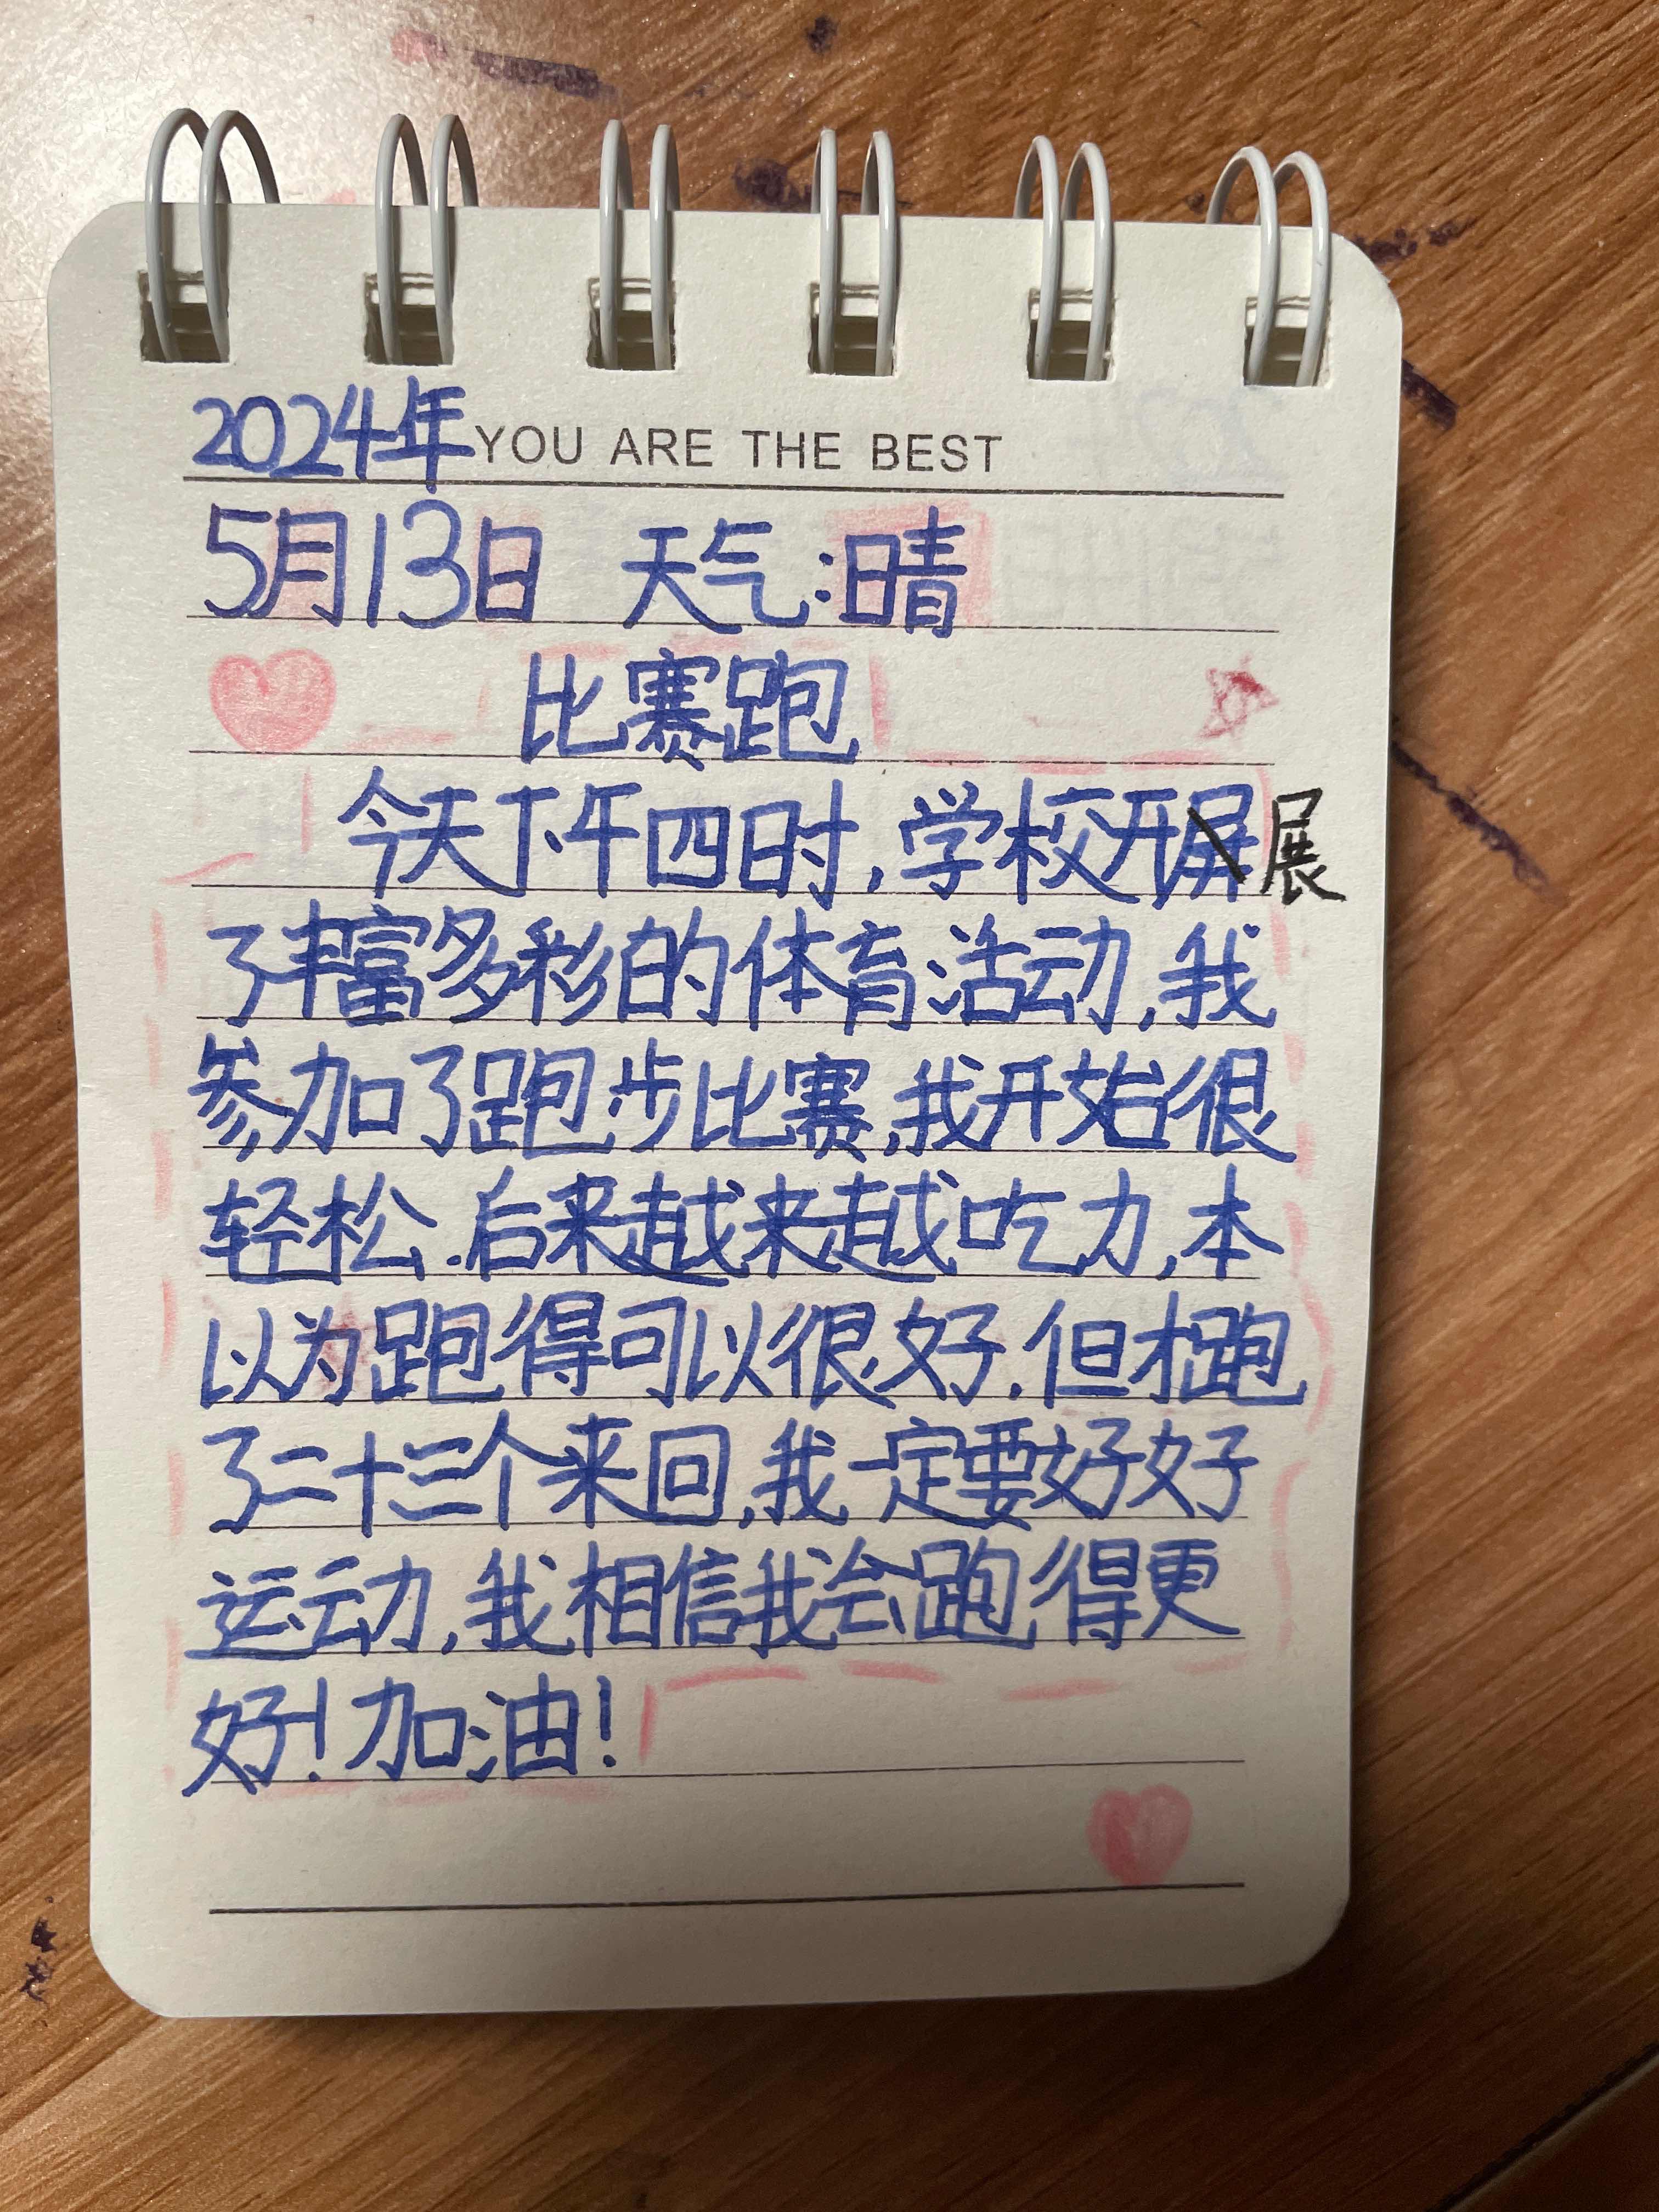 2024年 YOU ARE THE BEST
5月13日 天气:晴
比赛跑
今天下午四时,学校开屏展
了丰富多彩的体育活动,我
参加了跑步比赛,我开始很
轻松.后来越来越吃力,本
以为跑得可以很好.但才跑
了二十三个来回,我一定要好好
运动,我相信我会跑得更
好!加油!